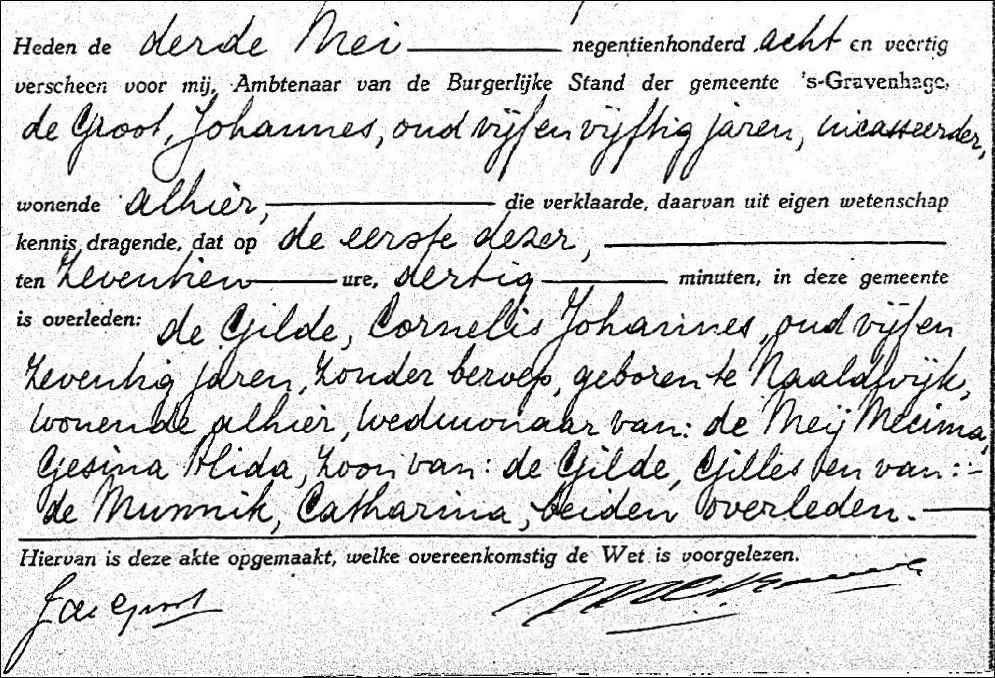 Heden de derde Mei negentienhonderd acht en veertig
verscheen voor mij, Ambtenaar van de Burgerlijke Stand der gemeente 's-Gravenhage,
de Groot, Johannes, oud vijf en vijftig jaren, incasseerder,
wonende alhier, die verklaarde, daarvan uit eigen wetenschap
kennis dragende, dat op de eerste dezer,
ten zeventien ure, dertig minuten, in deze gemeente
is overleden: de Gilde, Cornelis Johannes, oud vijf en
zeventig jaren, zonder beroep, geboren te Naaldwijk,
wonende alhier, weduwnaar van: de Meij
Gesina Alida, zoon van: de Gilde, Gilles en van:-
de Munnik, Catharina, beiden overleden.
Hiervan is deze akte opgemaakt, welke overeenkomstig de Wet is voorgelezen.
J de Groot